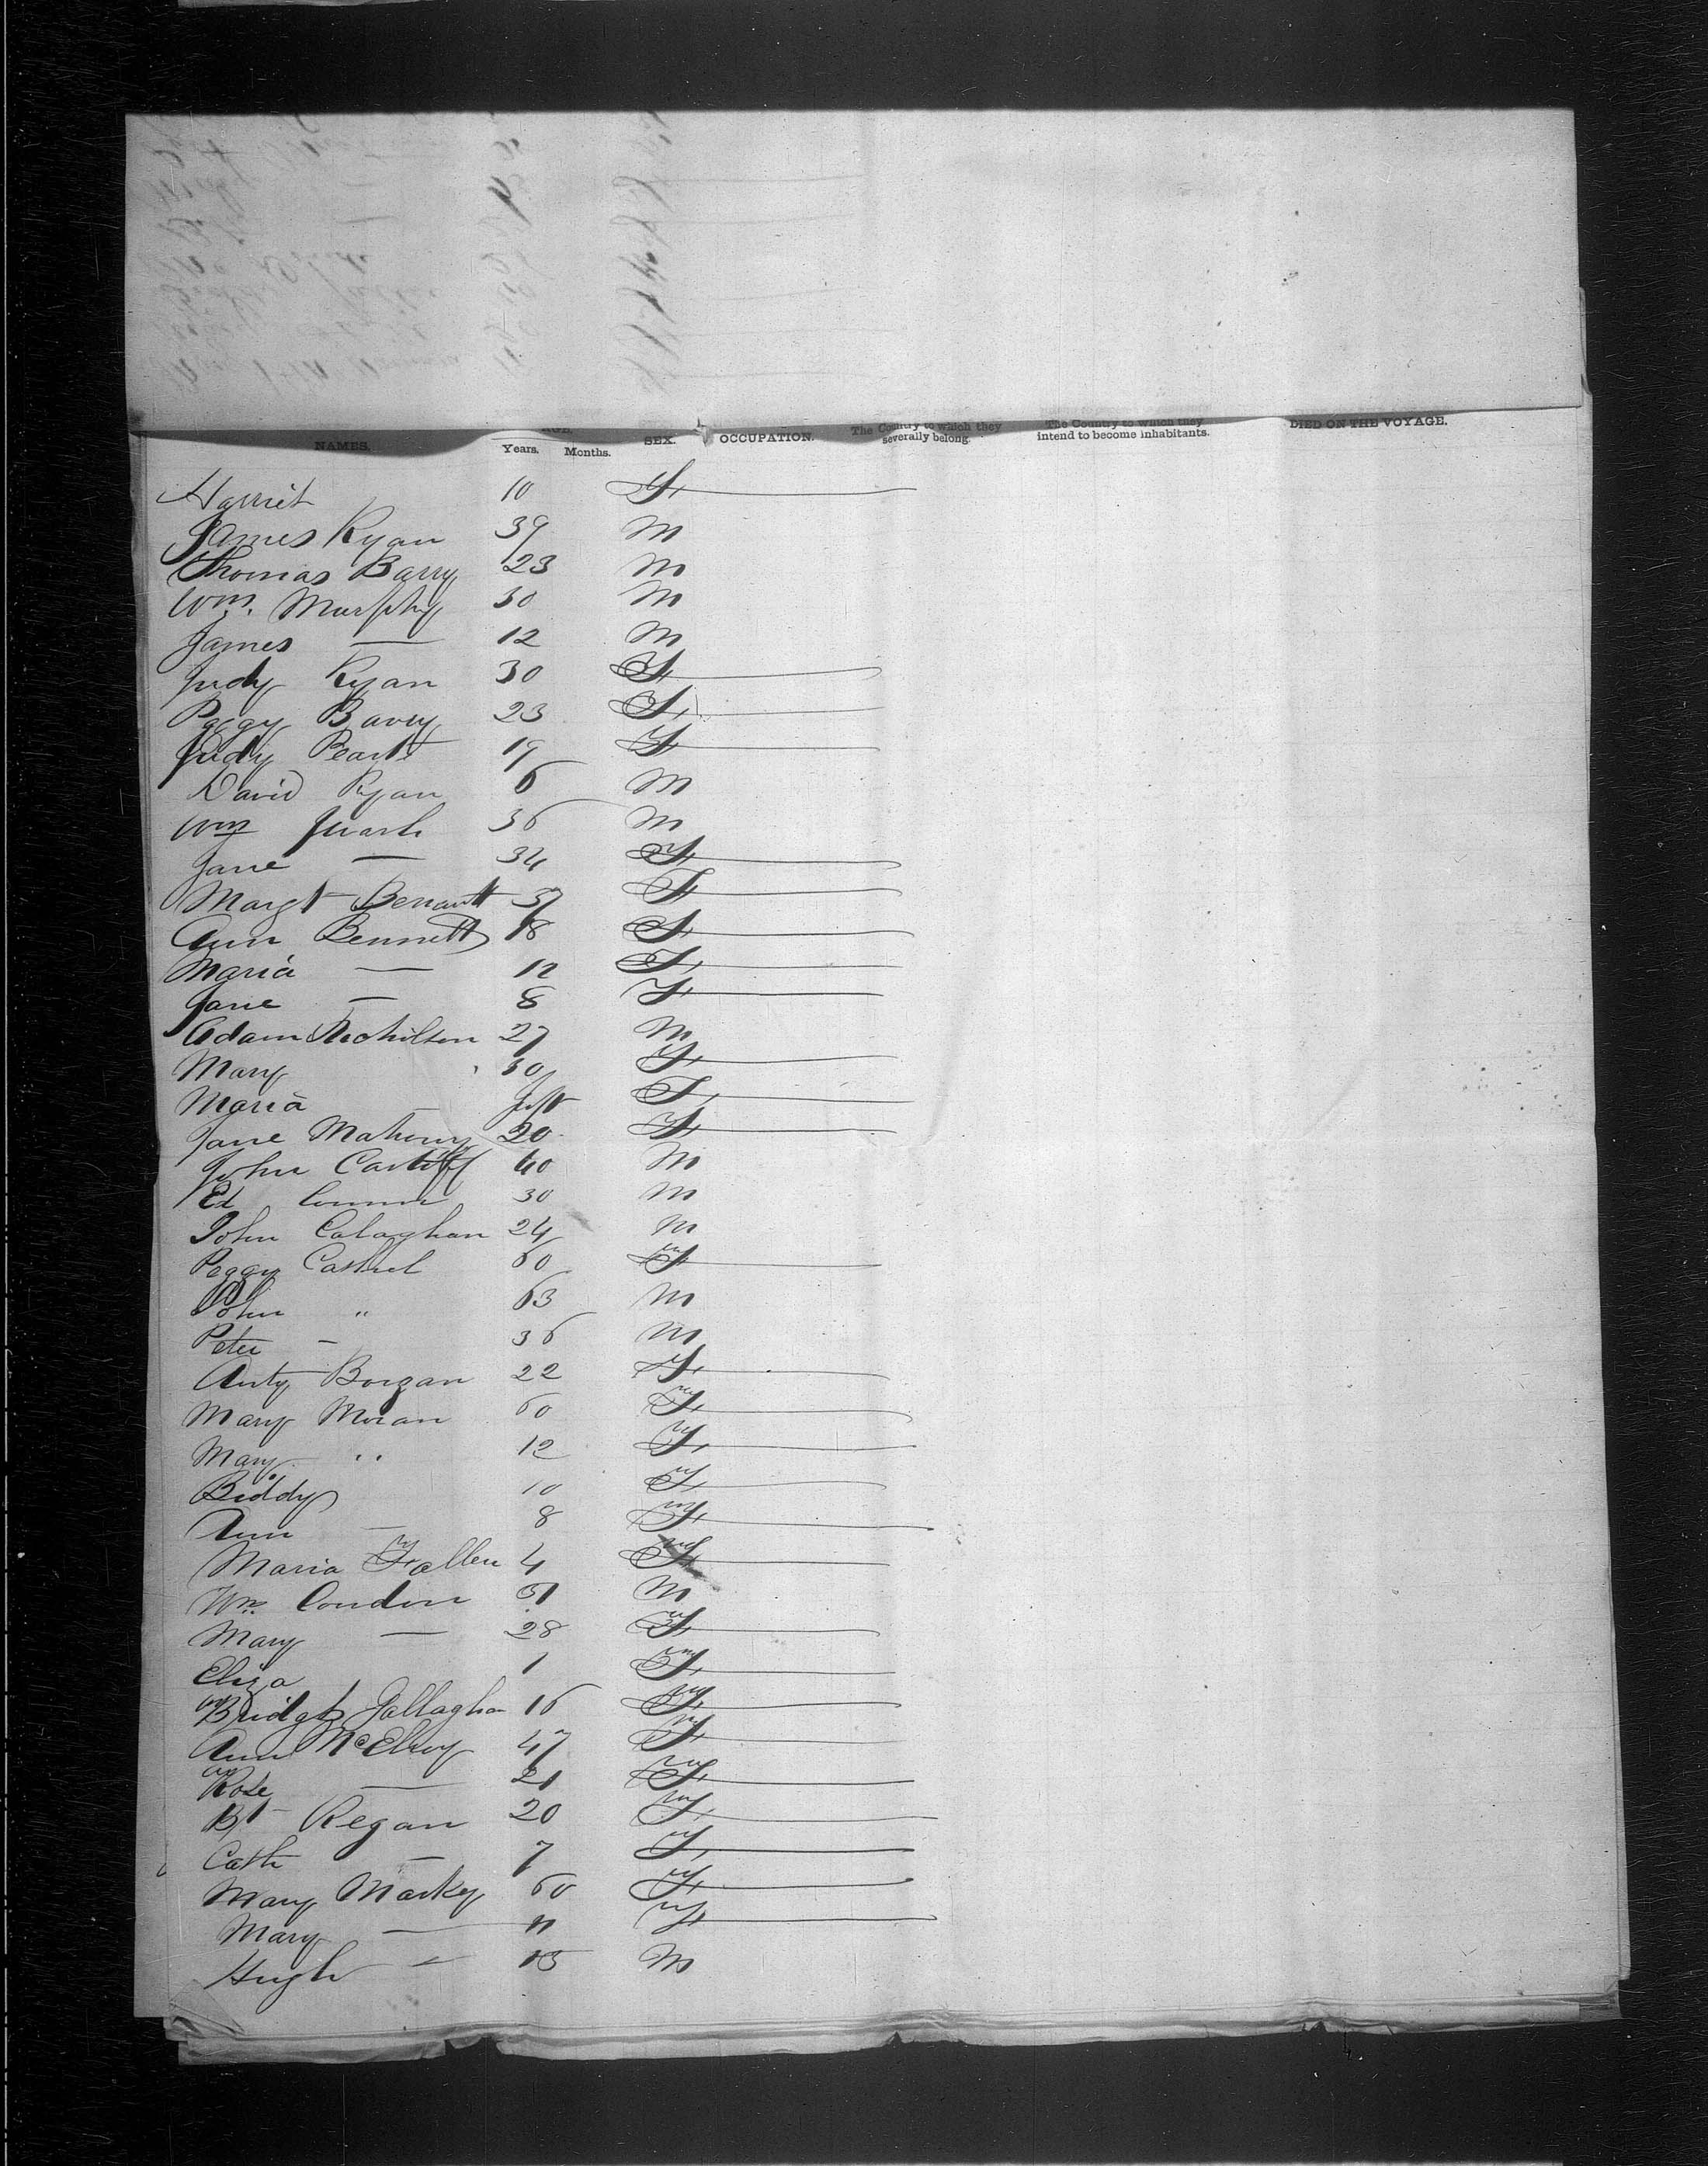 NAMES. AGE. SEX. OCCUPATION. The Country to which they severally belong. The Country to which they intend to become inhabitants. DIED ON THE VOYAGE.
Years. Months.
Harriet 10 F
James Ryan 39 M
Thomas Barry 23 M
Wm. Murphy 30 M
James — 12 M
Judy Ryan 30 F
Peggy Barry 23 F
Judy 19 F
David Ryan 6 M
Wm 36 M
Jane — 34 F
Margt 37 F
Ann Bennett 18 F
Maria — 12 F
Jane — 8 F
Adam Nicholson 27 M
Mary 30 F
Maria — Inft F
Jane Mahony 20 F
John 40 M
Ed 30 M
John Calaghan 24 M
Peggy 60 F
John " 63 M
Peter - 36 M
Borgan 22 F
Mary Moran 60 F
Mary " 12 F
Biddy 10 F
Ann — 8 F
Maria Fallen 4 F
Wm Condon M
Mary — 28 F
Eliza 1 F
Bridgt Gallagher 16 F
Ann McElroy 47 F
Rose — 21 F
Bt Regan 20 F
Cath — 7 F
Mary Markey 60 F
Mary — 11 F
Hugh — 15 M